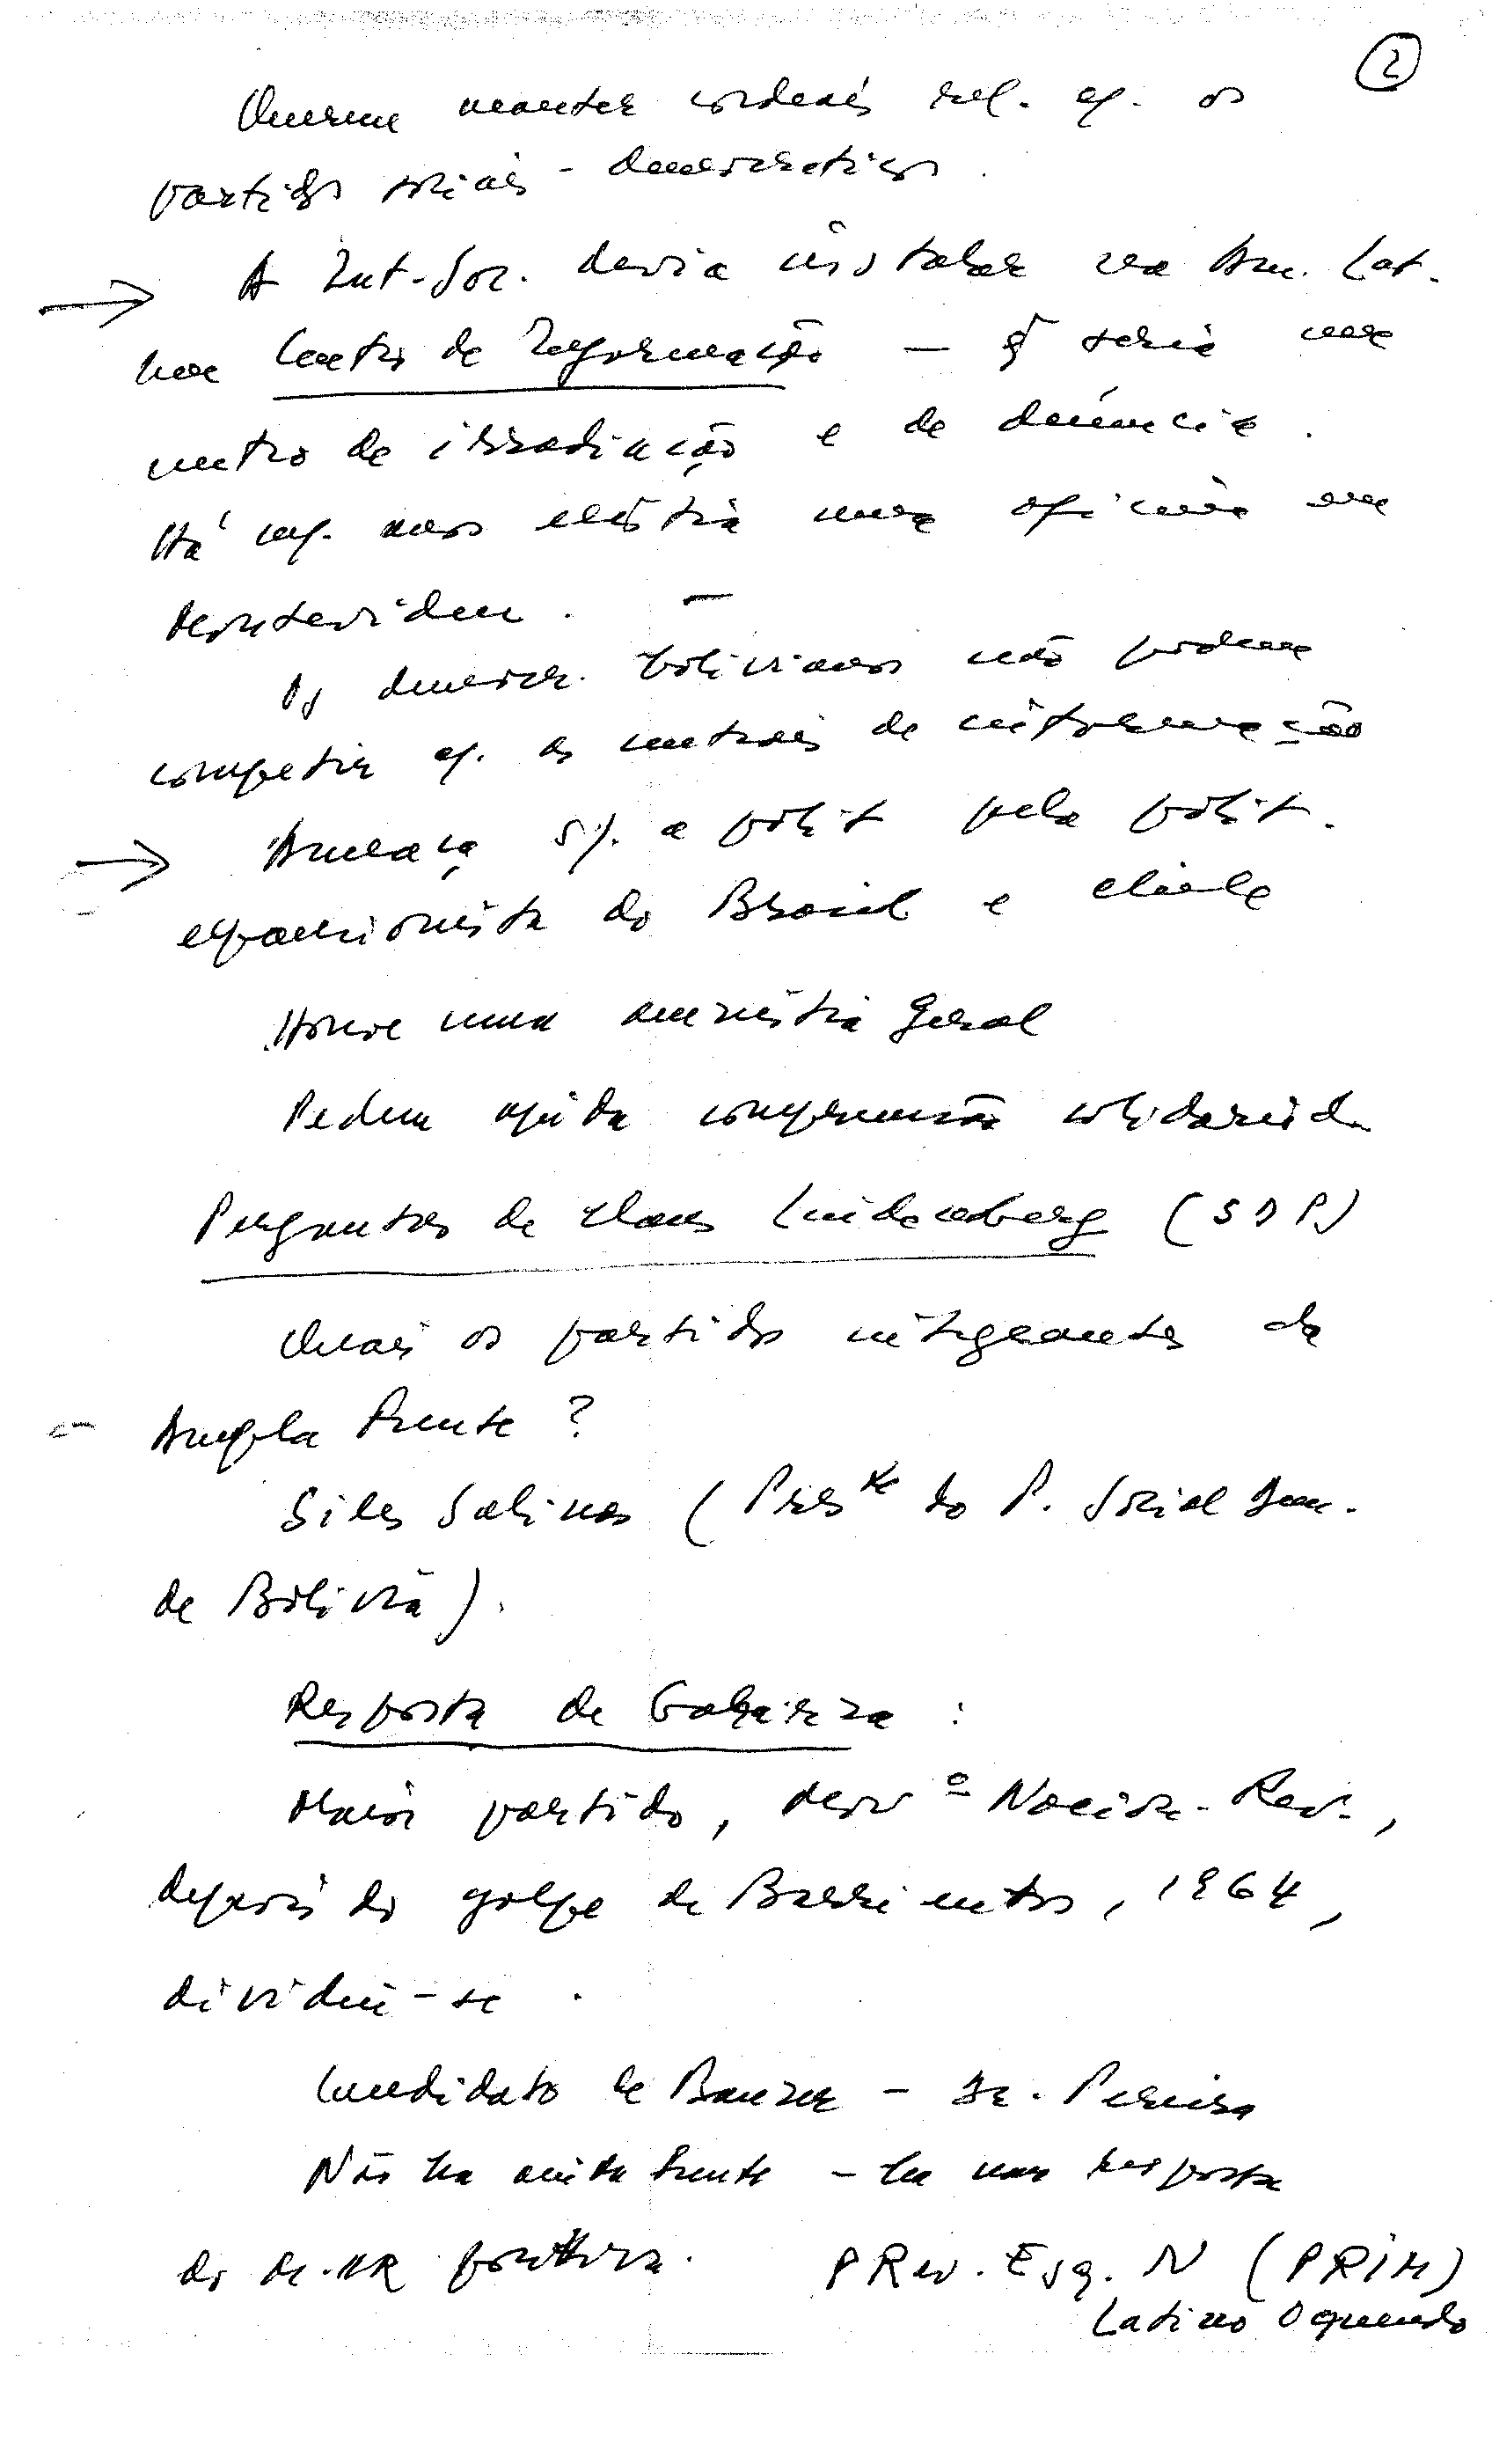 2
Querem manter cordeais rel. c/. os
partidos sociais-democraticos.
→ A Int-Soc. devia instalar na Am. Lat.
um Centro de Informação — q̃ seria um
centro de irradiação e de denúncia.
Há anos existia uma oficina em
Montevideu. —
Os democr. bolivianos não podem
competir c/. as centrais de informação
→ Ameaça s/. a polit pela polit.
expansionista do Brasil e Chile
Houve uma amnistia geral
Pedem ajuda compreensão solidaried.
Perguntas de Klaus Lindenberg (SDP)
Quais os partidos integrantes da
Ampla Frente?
Siles Salinas (Preste do P. Social Dem.
de Bolivia).
Resposta de Galharza:
Maior partido, Movº Nacion. Rev.,
depois do golpe de Barrientos, 1964,
dividiu-se.
Candidato de Banzer - Pereira
Não ha outra frente - ha uma resposta
do M.NR PRev. Esq. N (PRIN)
Latino Oquendo